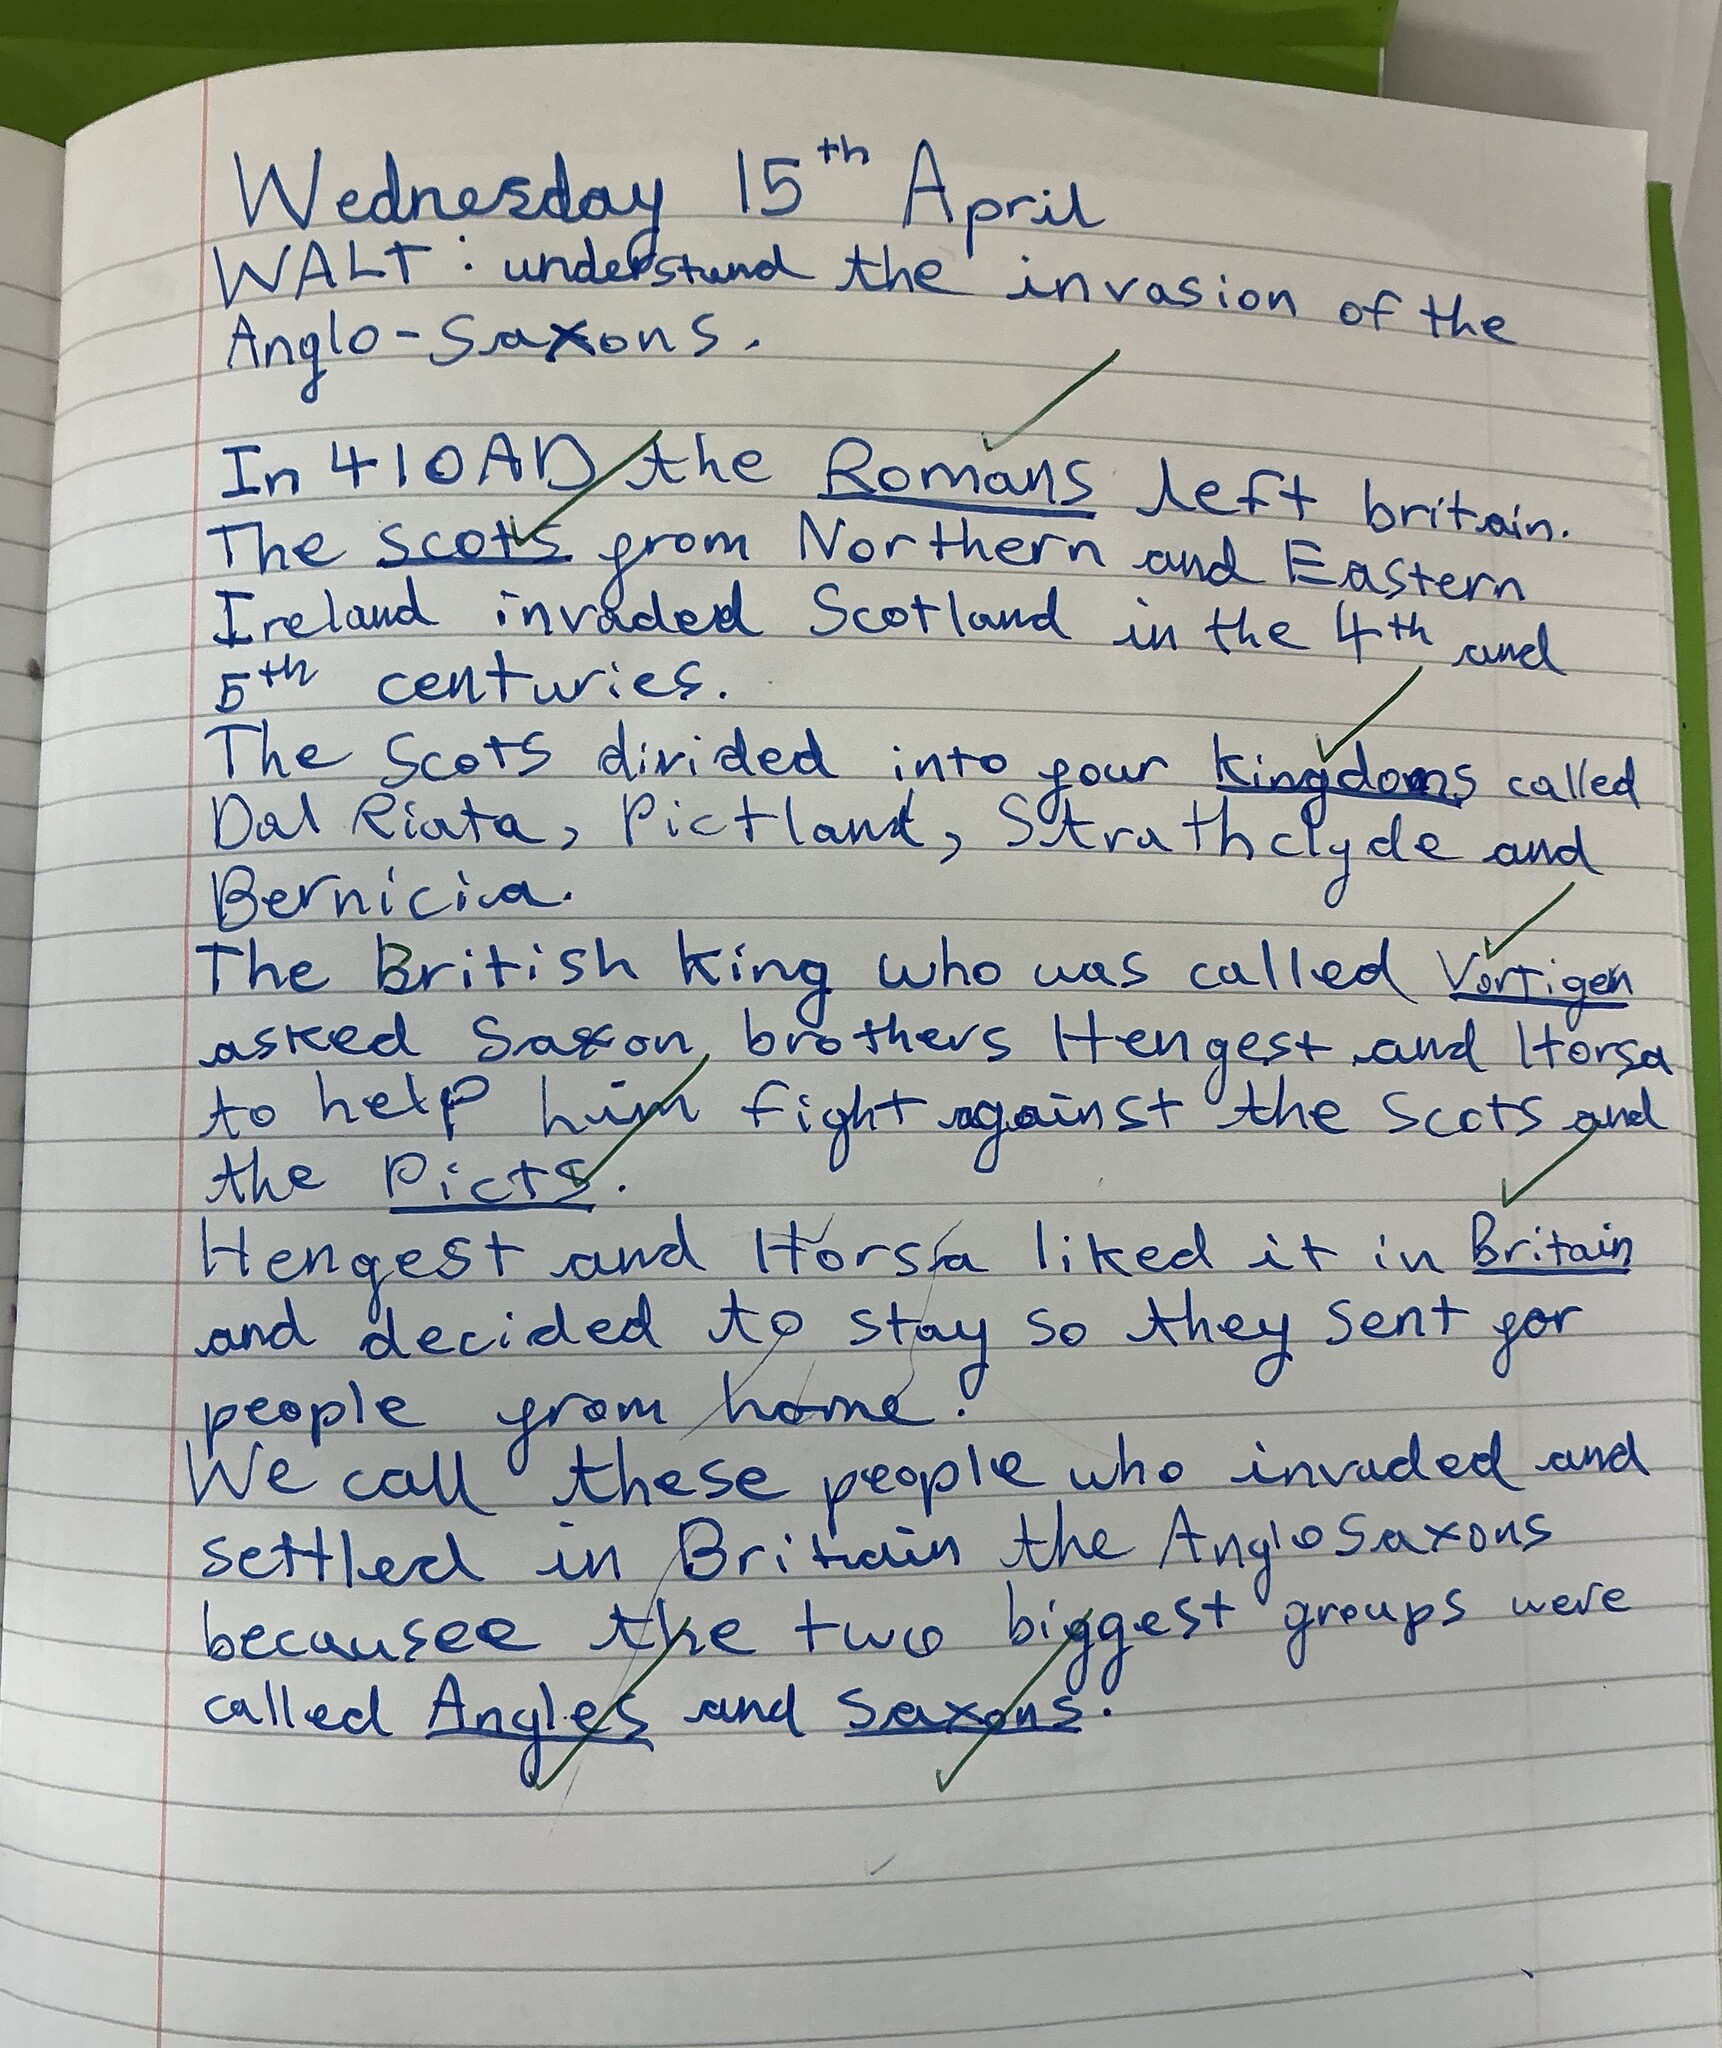 Wednesday 15th April
WALT: understand the invasion of the
Anglo-Saxons.
In 410AD the Romans left britain.
The scots from Northern and Eastern
Ireland invaded Scotland in the 4th and
5th centuries.
The Scots divided into four kingdoms called
Dal Riata, Pictland, Strathclyde and
Bernicia.
The British king who was called Vortigen
asked Saxon brothers Hengest and Horsa
to help him fight against the Scots and
the Picts.
Hengest and Horsa liked it in Britain
and decided to stay so they sent for
people from home.
We call these people who invaded and
settled in Britain the Anglo Saxons
becausee the two biggest groups were
called Angles and Saxons.